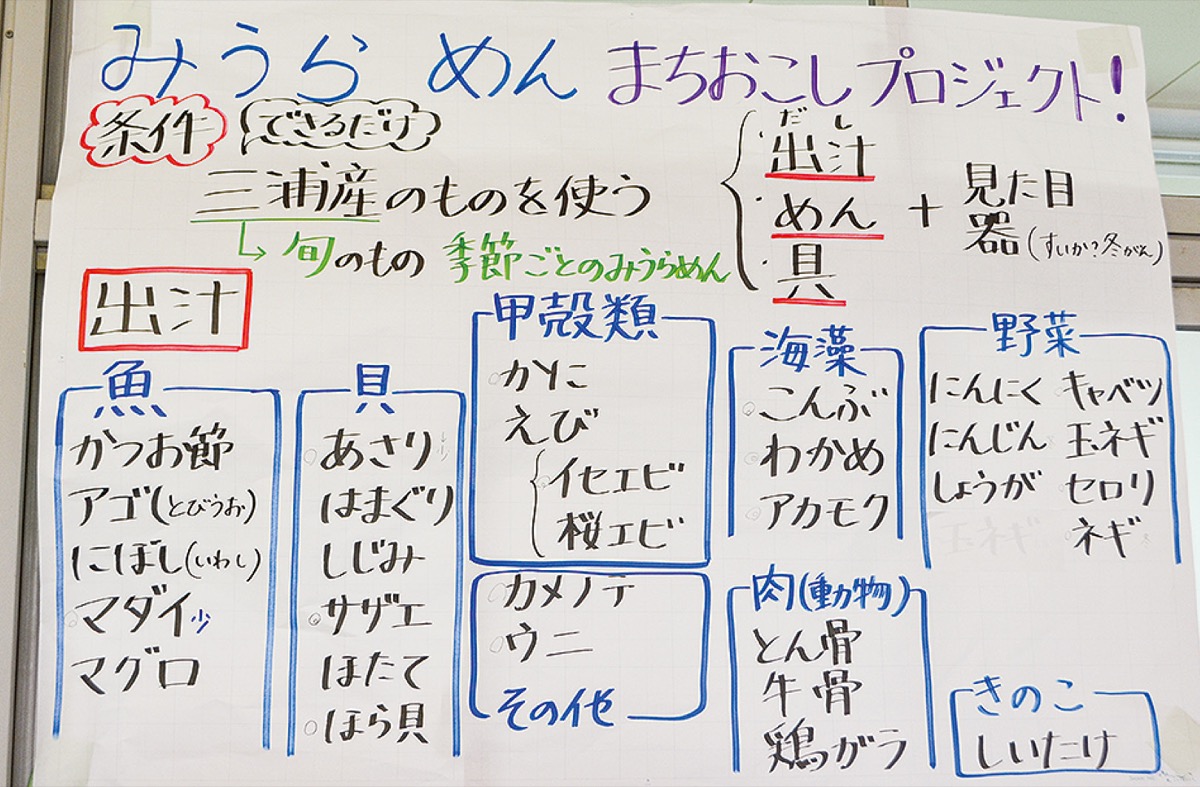 みうら めん まちおこしプロジェクト!
条件 できるだけ
三浦産のものを使う
旬のもの 季節ごとのみうらめん
だし
・出汁
・めん
・具
+ 見た目
器(すいか?冬がん)
出汁
魚
かつお節
アゴ(とびうお)
にぼし(いわし)
マダイ少
マグロ
貝
あさり少
はまぐり
しじみ
サザエ
ほたて
ほら貝
甲殻類
かに
えび
イセエビ
桜エビ
カメノテ
ウニ
その他
海藻
こんぶ
わかめ
アカモク
肉(動物)
とん骨
牛骨
鶏ガラ
野菜
にんにく キャベツ
にんじん 玉ネギ
しょうが セロリ
ネギ
きのこ
しいたけ